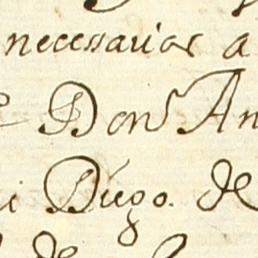 necessarios a
Don An
Diego. de